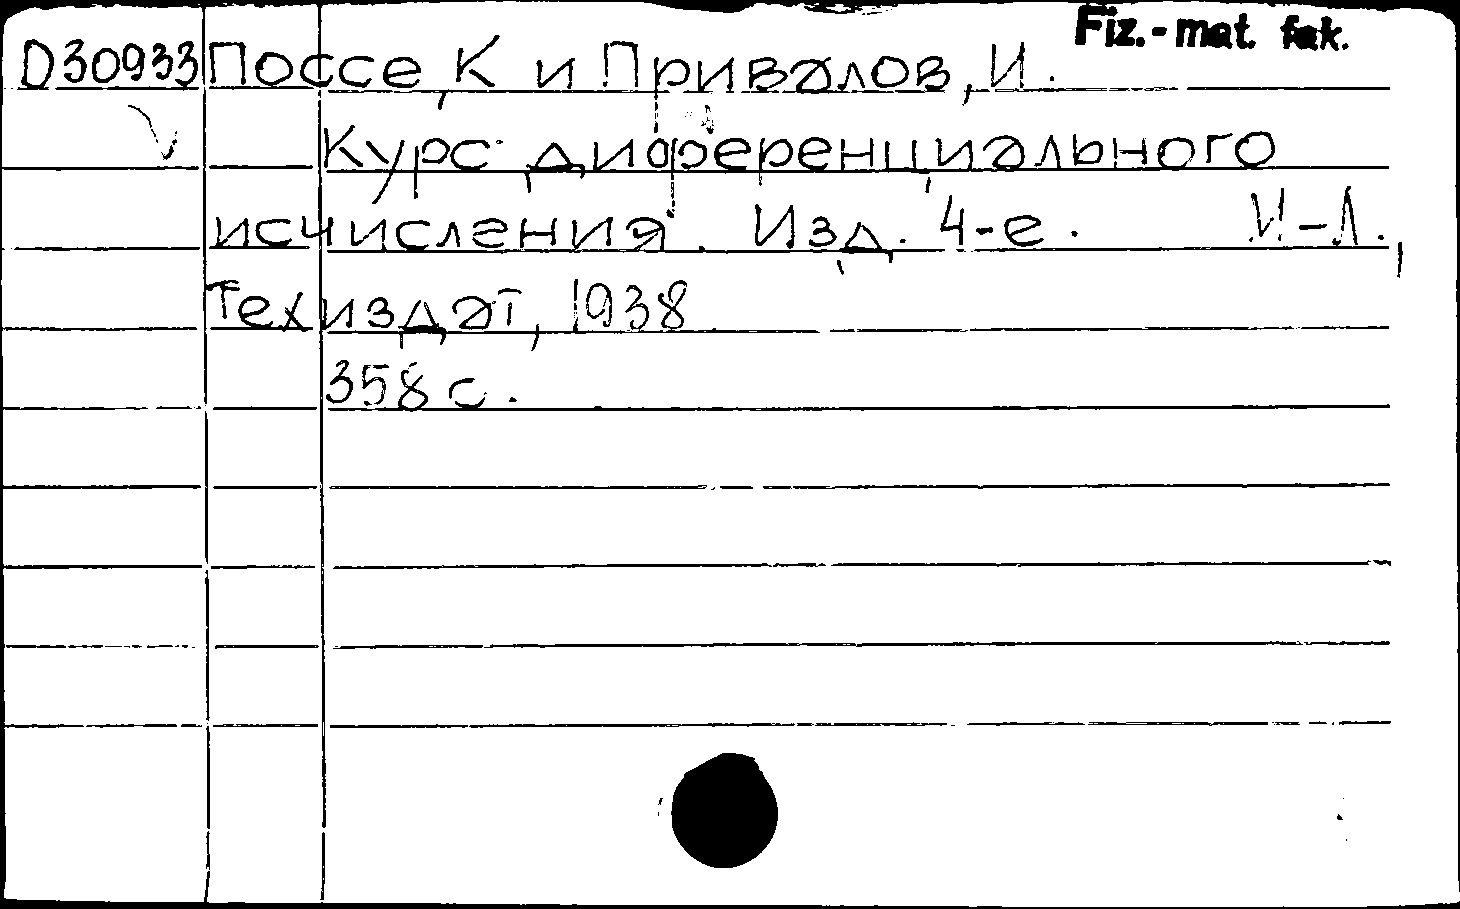 Fiz.-mat. fak.
D30933 Поссе, К и Привалов, И.
Курс диференциального
исчисления. Изд. 4-е. М-Л.,
Техиздат, 1938
358 с.